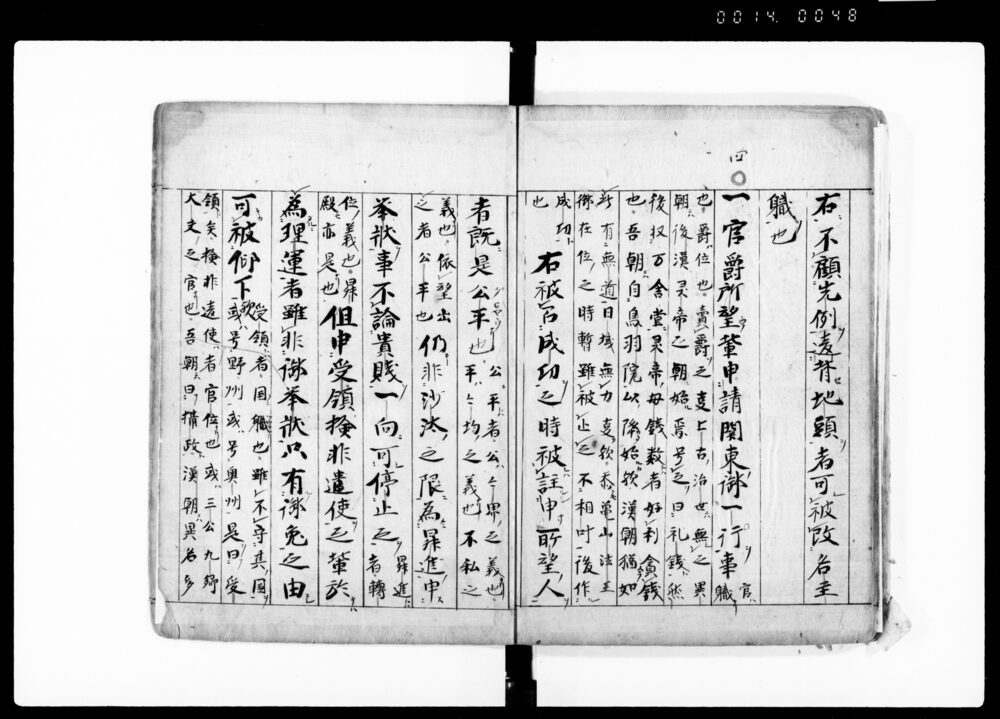 0014. 0048
右不顧先例違背地頭者可被改名主
職也
四
一官爵所望輩申請關東御一行事 官職
也爵位也賣爵之支上古治世無之異
朝後漢灵帝之朝始焉号之曰礼錢然
後收万舍堂
也吾朝自鳥羽院以降始欤漢朝猶如
斯有無道日域無力支欤
御在位之時暫雖被止之不相叶後作
成功
也
右被召成功之時被註申所望人
者既是公平也 公平者公公界之義也
平平均之義也不私之
義也依望出
之者公平也
仍非沙汰之限為昇進申
挙状事不論貴賤一向可停止之 昇進
者轉
位義也昇
殿亦是也
但申受領検非違使之輩於
為理運者雖非御挙状只有御免之由
可被仰下欤 受領者国職也雖不守其国
或号野州或号奥州是曰受
領矣検非違使者官位也或三公九卿
大夫之官也吾朝曰攝政漢朝異名多